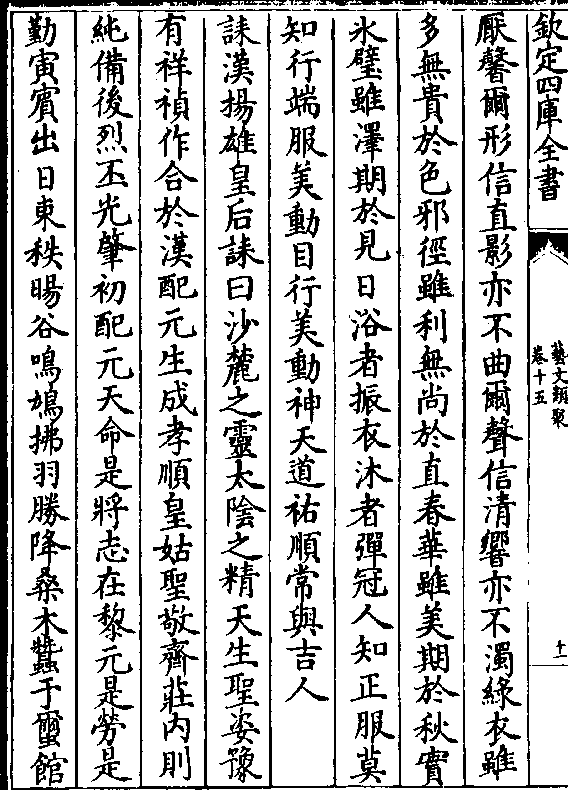 欽定四庫全書
藝文類聚
卷十五
十一
厥馨爾形信直影亦不曲爾聲信清響亦不濁綠衣雖
多無貴於色邪徑雖利無尚於直春華雖美期於秋實
氷璧雖澤期於見日浴者振衣沐者彈冠人知正服莫
知行端服美動目行美動神天道祐順常與吉人
誄漢揚雄皇后誄曰沙麓之靈太陰之精天生聖姿豫
有祥禎作合於漢配元生成孝順皇姑聖敬齊莊内則
純備後烈丕光肇初配元天命是將志在黎元是勞是
勤寅賓出日東秩暘谷鳴鳩拂羽勝降桑木蠶于蠒館